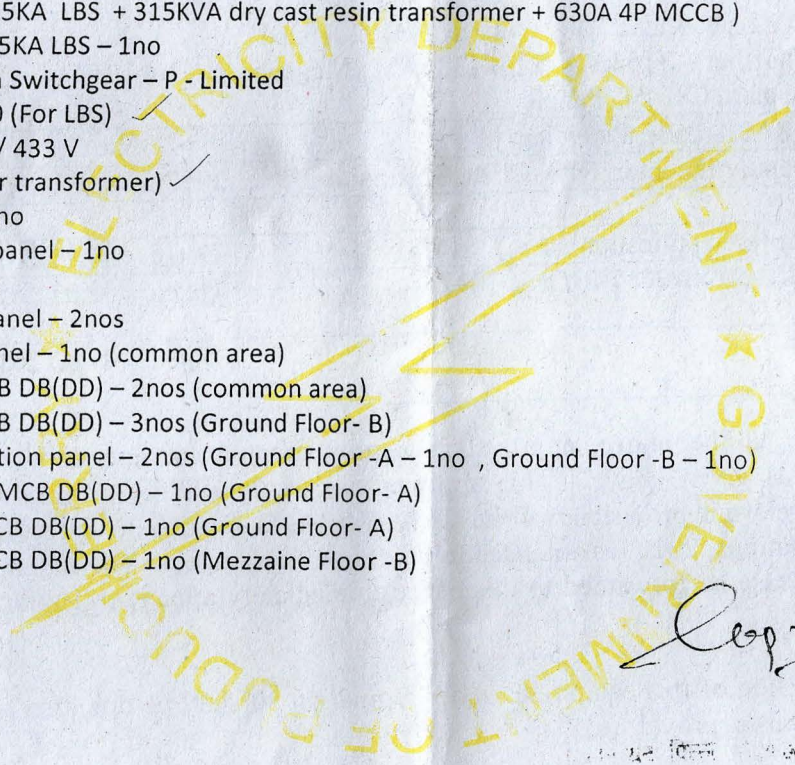 5KA LBS + 315KVA dry cast resin transformer + 630A 4P MCCB )
5KA LBS – 1no
Switchgear – P - Limited
(For LBS)
/ 433 V
r transformer)
no
panel – 1no
anel – 2nos
nel – 1no (common area)
B DB(DD) – 2nos (common area)
B DB(DD) – 3nos (Ground Floor- B)
tion panel – 2nos (Ground Floor -A – 1no , Ground Floor -B – 1no)
MCB DB(DD) – 1no (Ground Floor- A)
CB DB(DD) – 1no (Ground Floor- A)
CB DB(DD) – 1no (Mezzaine Floor -B)
ELECTRICITY DEPARTMENT ★ GOVERNMENT OF PUDUCHERRY ★